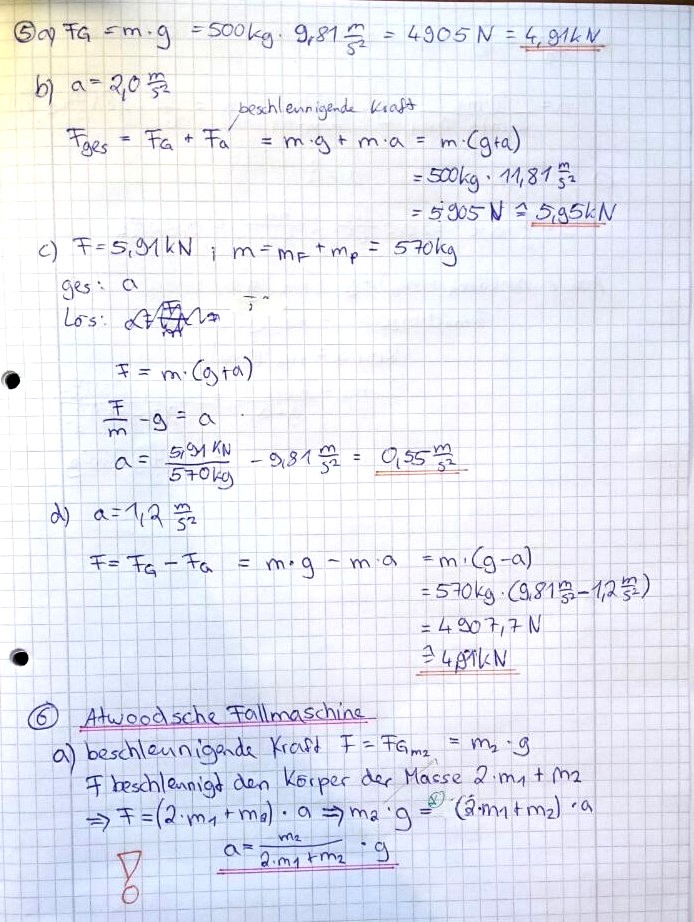 ⑤ a) FG = m·g = 500kg · 9,81 m/s² = 4905 N = 4,91kN
b) a = 2,0 m/s²
beschleunigende Kraft
Fges = FG + Fa = m·g + m·a = m·(g+a)
= 500kg · 11,81 m/s²
= 5905 N ≙ 5,95kN
c) F = 5,91kN ; m = mF + mP = 570kg
ges: a
Lös:
F = m·(g+a)
F/m - g = a
a = 5,91 KN / 570kg - 9,81 m/s² = 0,55 m/s²
d) a = 1,2 m/s²
F = FG - Fa = m·g - m·a = m·(g-a)
= 570kg · (9,81 m/s² - 1,2 m/s²)
= 4907,7 N
≙ 4,91kN
⑥ Atwoodsche Fallmaschine
a) beschleunigende Kraft F = FGm2 = m2 · g
F beschleunigt den Körper der Masse 2·m1 + m2
⇒ F = (2·m1 + m2) · a ⇒ m2 · g = (2·m1 + m2) · a
a = m2 / 2·m1 + m2 · g
!